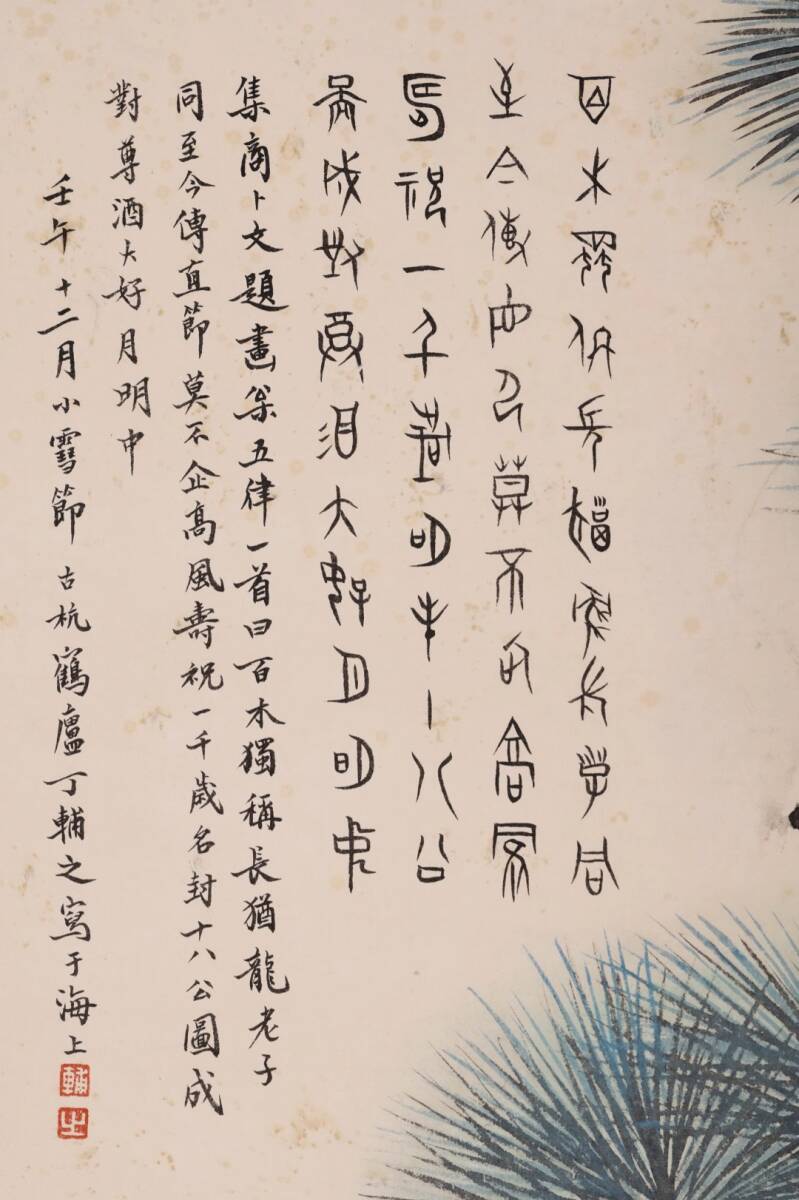 百木獨稱長猶龍老子同
至今傳直節莫不企高風
壽祝一千歲名封十八公
圖成對尊酒大好月明中
集商卜文題畫枀五律一首曰百木獨稱長猶龍老子
同至今傳直節莫不企高風壽祝一千歲名封十八公圖成
對尊酒大好月明中
壬午十二月小雪節古杭鶴廬丁輔之寫于海上
輔
之